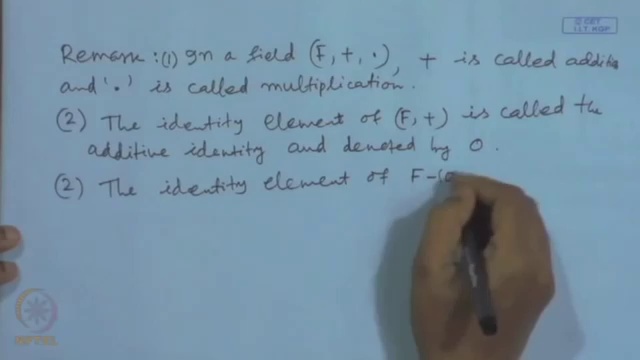 © CET
I.I.T. KGP
Remark :(1) In a field (F, +, ·), + is called additio
and '·' is called multiplication.
(2) The identity element of (F, +) is called the
additive identity and denoted by 0.
(2) The identity element of F-{0
NPTEL